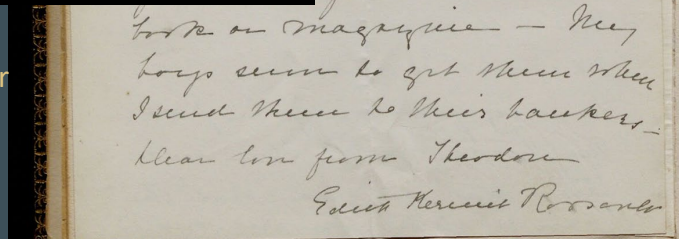 book or magazine – My
boys seem to get them when
I send them to their bankers –
Dear love from Theodore
Edith Kermit Roosevelt